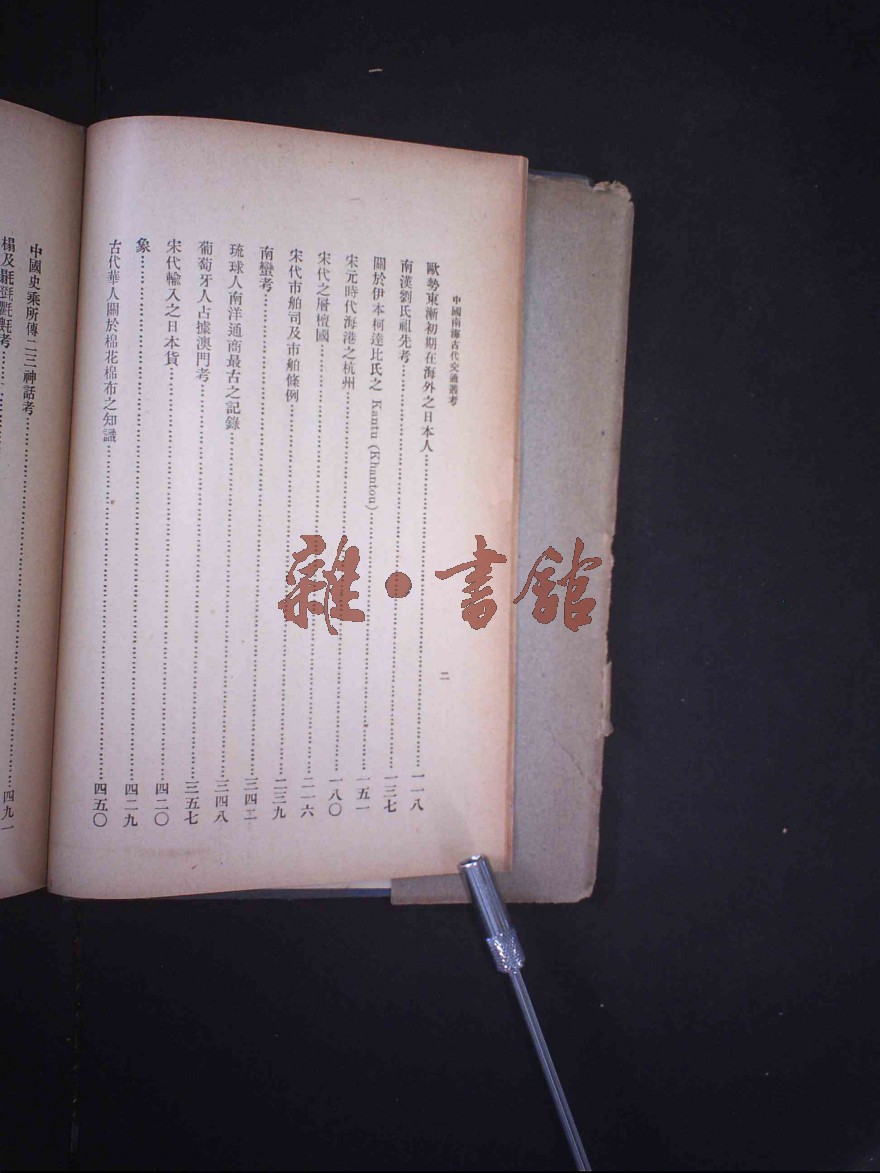 中國南海古代交通叢考
二
歐勢東漸初期在海外之日本人 一一八
南漢劉氏祖先考 一三七
關於伊本柯達比氏之 Kantu (Khantou) 一五一
宋元時代海港之杭州 一八〇
宋代之層檀國 二一六
宋代市舶司及市舶條例 二三九
南蠻考 三四二
琉球人南洋通商最古之記錄 三四八
葡萄牙人占據澳門考 三五七
宋代輸入之日本貨 四二〇
象 四二九
古代華人關於棉花棉布之知識 四五〇
中國史乘所傳二三神話考
四九一
雜・書館